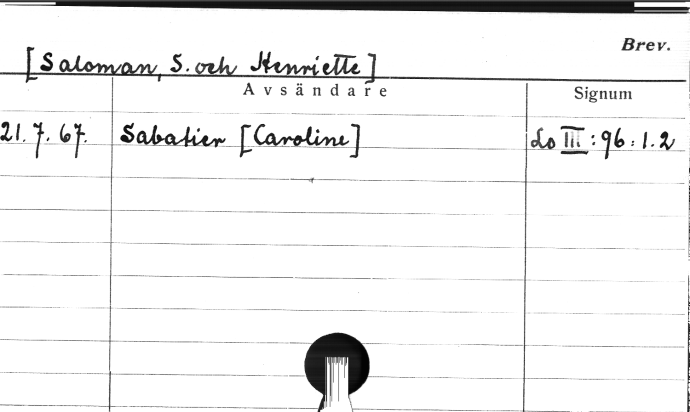 Brev.
[Saloman, S. och Henriette]
Avsändare Signum
21.7.67. Sabatier [Caroline] Lo III:96:1.2